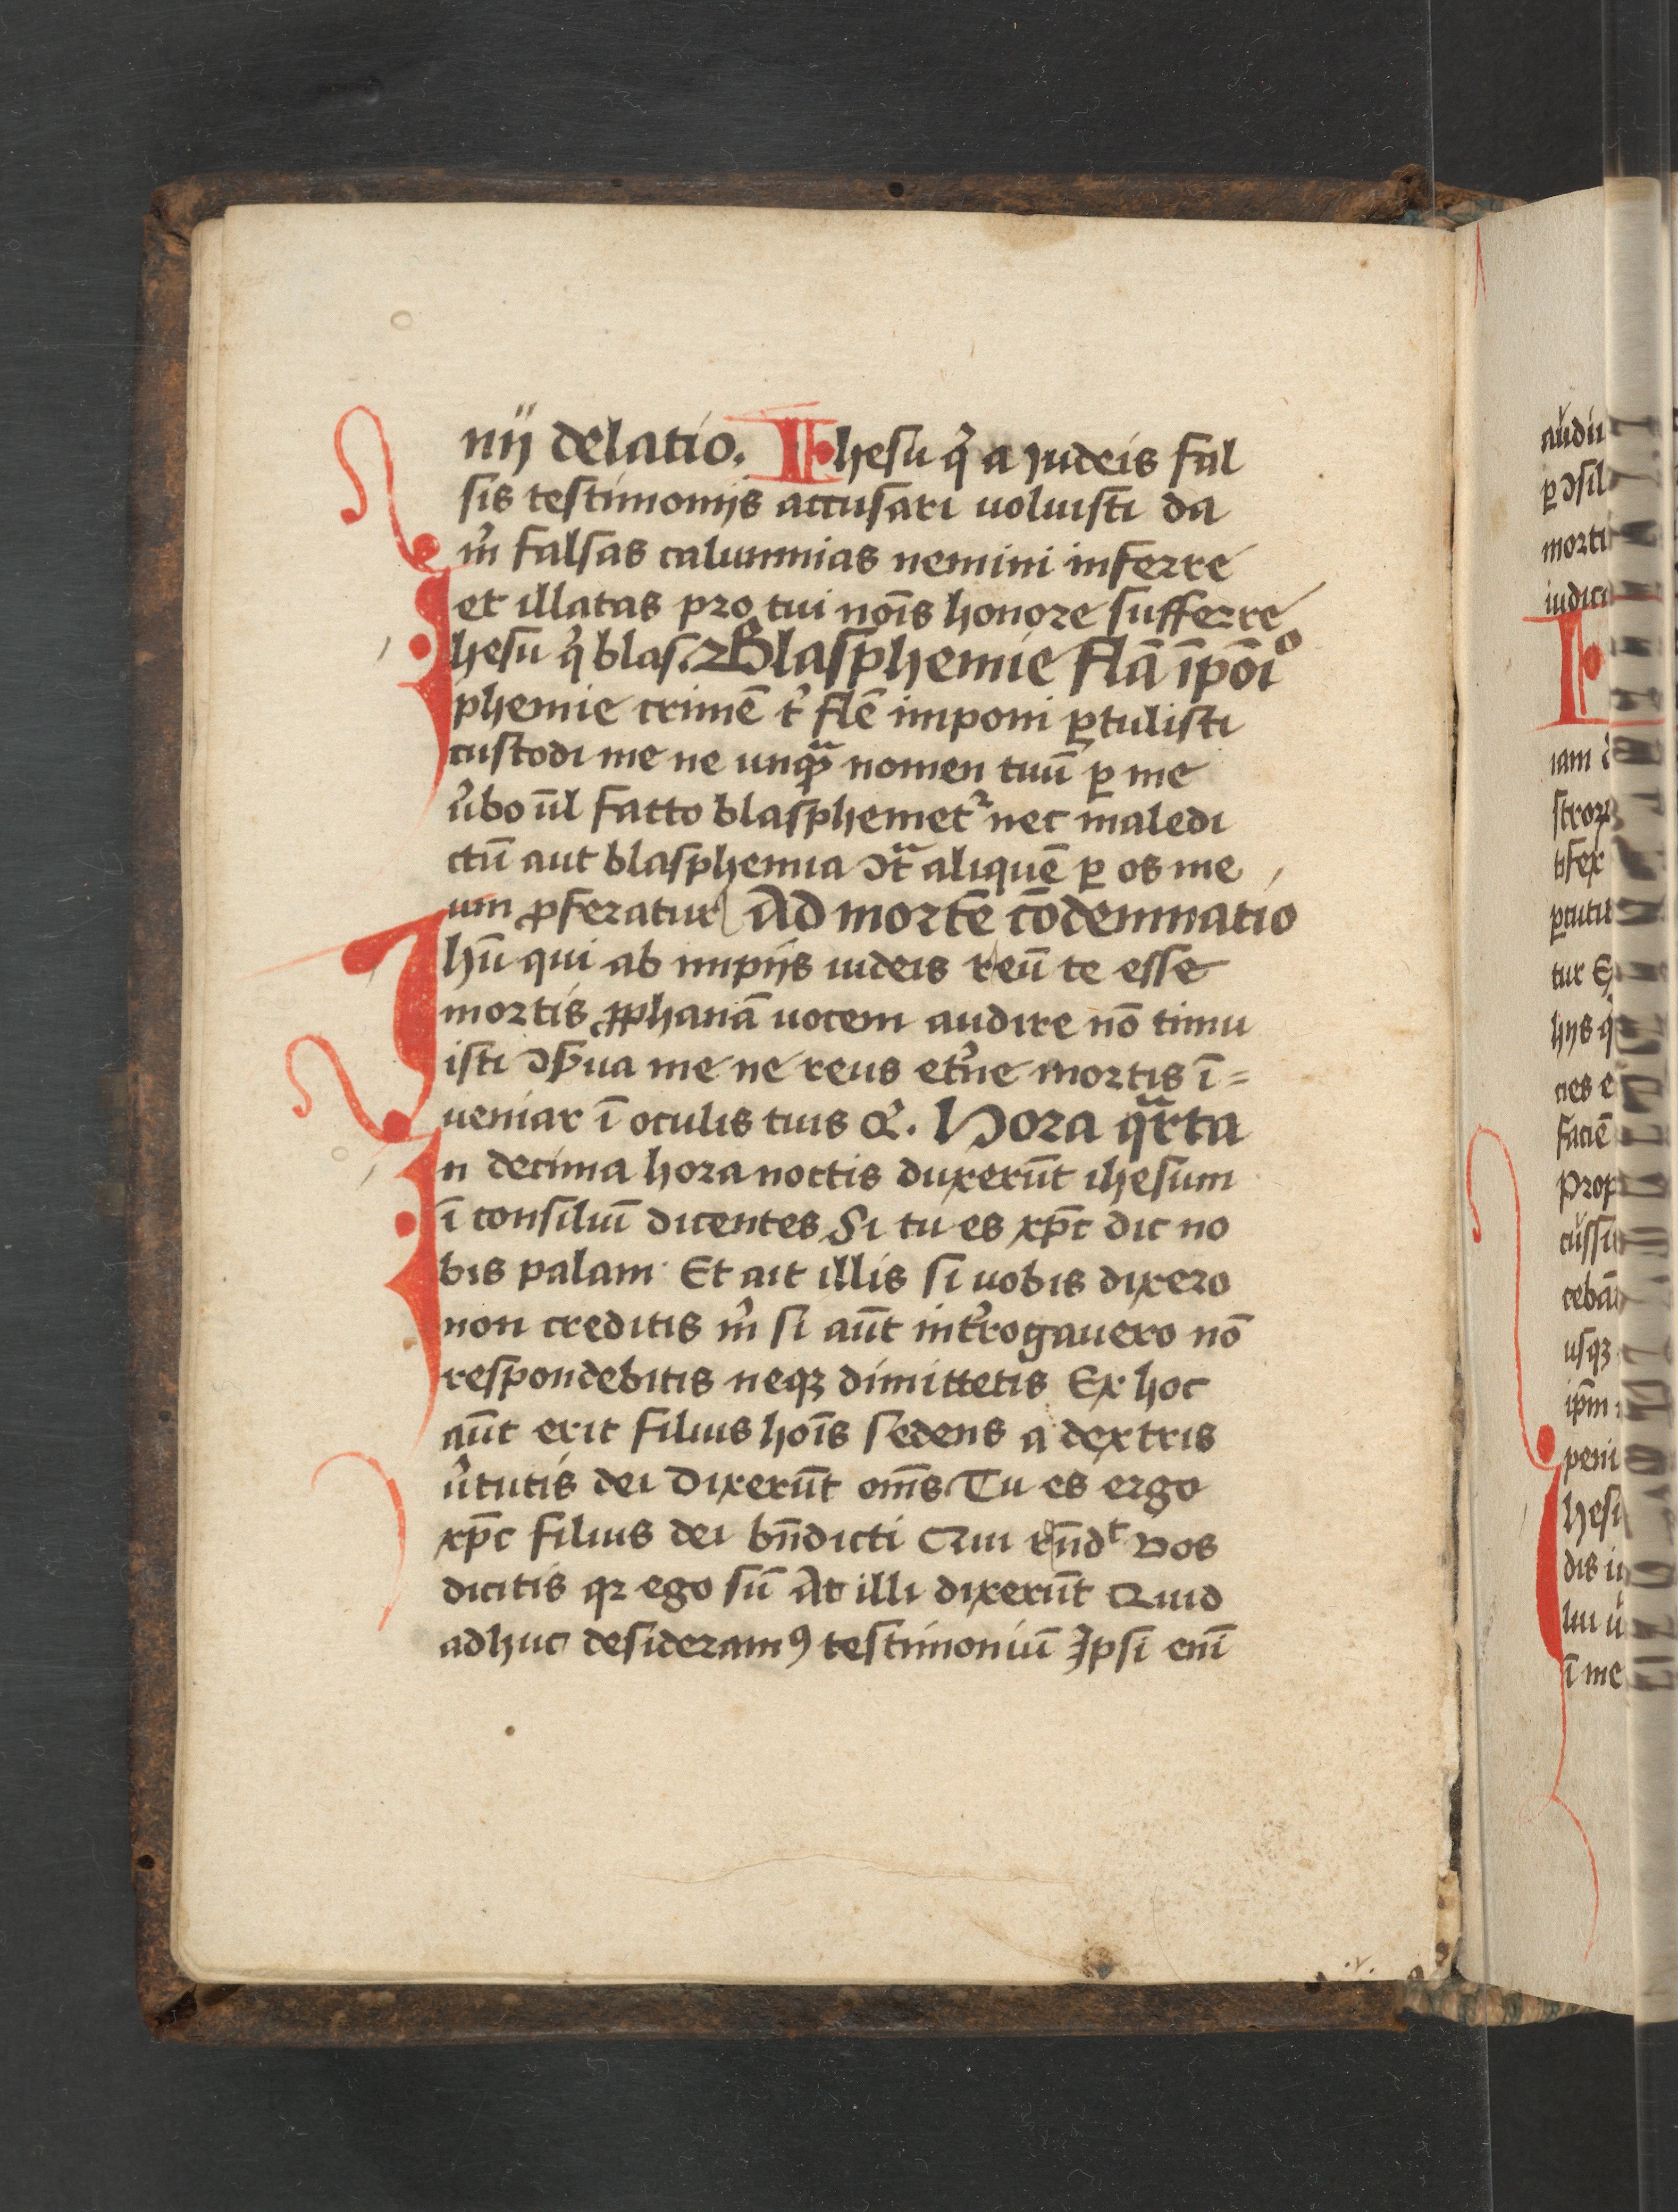 nij delatio. Ihesu qͥ a iudeis fal
sis testimonijs accusari uoluisti da
m̉ falsas calumnias nemini inferre
et illatas pro tui nois̄ honore sufferre
Ihesu qͥ blas. Blasphemie flā īpōiº
phemie crimē t̉ flē imponi ꝑtulisti
custodi me ne unqᷓ nomen tuū ꝑ me
ūbo ūl facto blasphemetᷣ nec maledi
ctū aut blasphemia ↄtᷓ aliquē ꝑ os me
um ꝓferatur Ad mortē cōdemnatio
Ihū qui ab impijs iudeis reū te esse
mortis ꝓphanā uocem audire nō timu
isti ↄẜua me ne reus et̉ne mortis ī=
ueniar ī oculis tuis &. Hora qᷓrta
In decima hora noctis duxerūt ihesum
ī consiliū dicentes Si tu es xp̄c dic no
bis palam Et ait illis si uobis dixero
non creditis m̉ si aūt int̉rogauero nō
respondebitis neqꝫ dimittetis Ex hoc
aūt erit filius hoīs sedens a dextris
ūtutis dei Dixerūt om̄s Tu es ergo
xp̄c filius dei bn̄dicti Qui rn̄dᵗ Vos
dicitis qꝛ ego sū At illi dixerūt Quid
adhuc desideramꝰ testimoniū Ipsi enī
audi
ꝑ ↄsil
morti
iudici
I
iam
stroꝝ
tifex
ꝑcuti
tur
hijs qͥ
nes e
faciē
prop
cussi
cebā
usqꝫ
ip̄m
peni
Ihesu
dis iu
lui
ī me